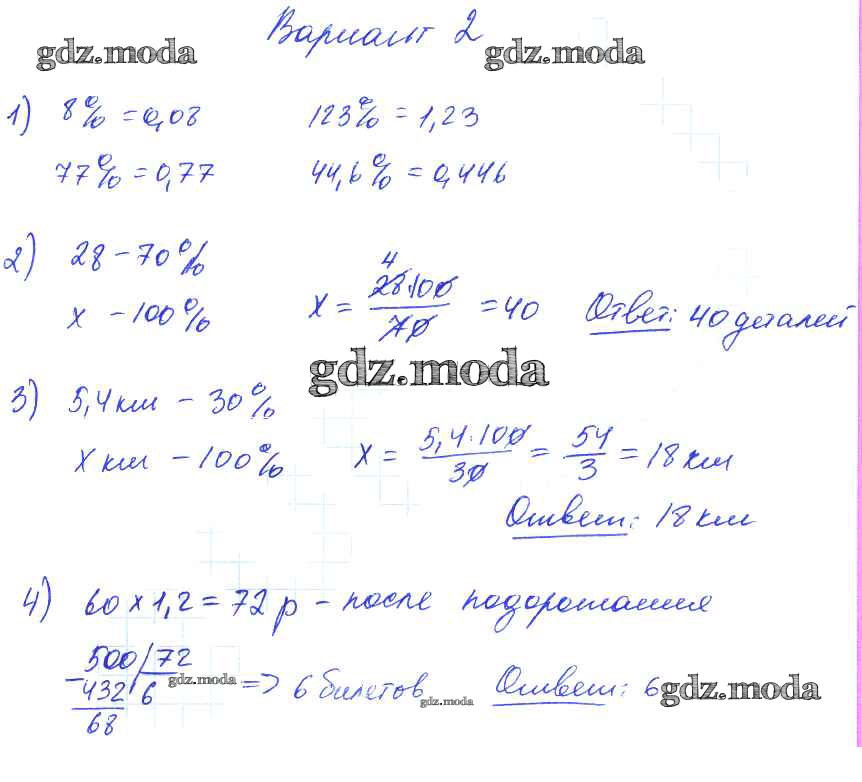 Вариант 2
gdz.moda gdz.moda
1) 8% = 0,08 123% = 1,23
77% = 0,77 44,6% = 0,446
2) 28 - 70%
x - 100% x = 28·100/70 = 40 Ответ: 40 деталей
4
gdz.moda
3) 5,4 км - 30%
x км - 100% x = 5,4·100/30 = 54/3 = 18 км
Ответ: 18 км
4) 60 x 1,2 = 72 р - после подорожания
500 72
- 432 6 gdz.moda => 6 билетов Ответ: 6 gdz.moda
68 gdz.moda